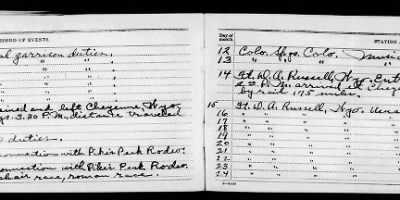 RECORD OF EVENTS.
garrison duties.
" " "
" " "
" " "
" " "
and left Cheyenne, Wyo.
3.20 P.M., distance traveled
duties.
" "
connection with Pike's Peak Rodeo.
connection with Pike's Peak Rodeo.
chair race, roman race.
STATION
Day of month.
12 Colo. Spgs. Colo.
13 " " "
14 Ft. D. A. Russell, Wyo.
P.M. arrived at
by rail 175 miles.
15 Ft. D. A. Russell, Wyo. Usual
16 " " " "
17 " " " "
18 " " " "
19 " " " "
20 " " " "
21 " " " "
22 " " " "
23 " " " "
24 " " " "